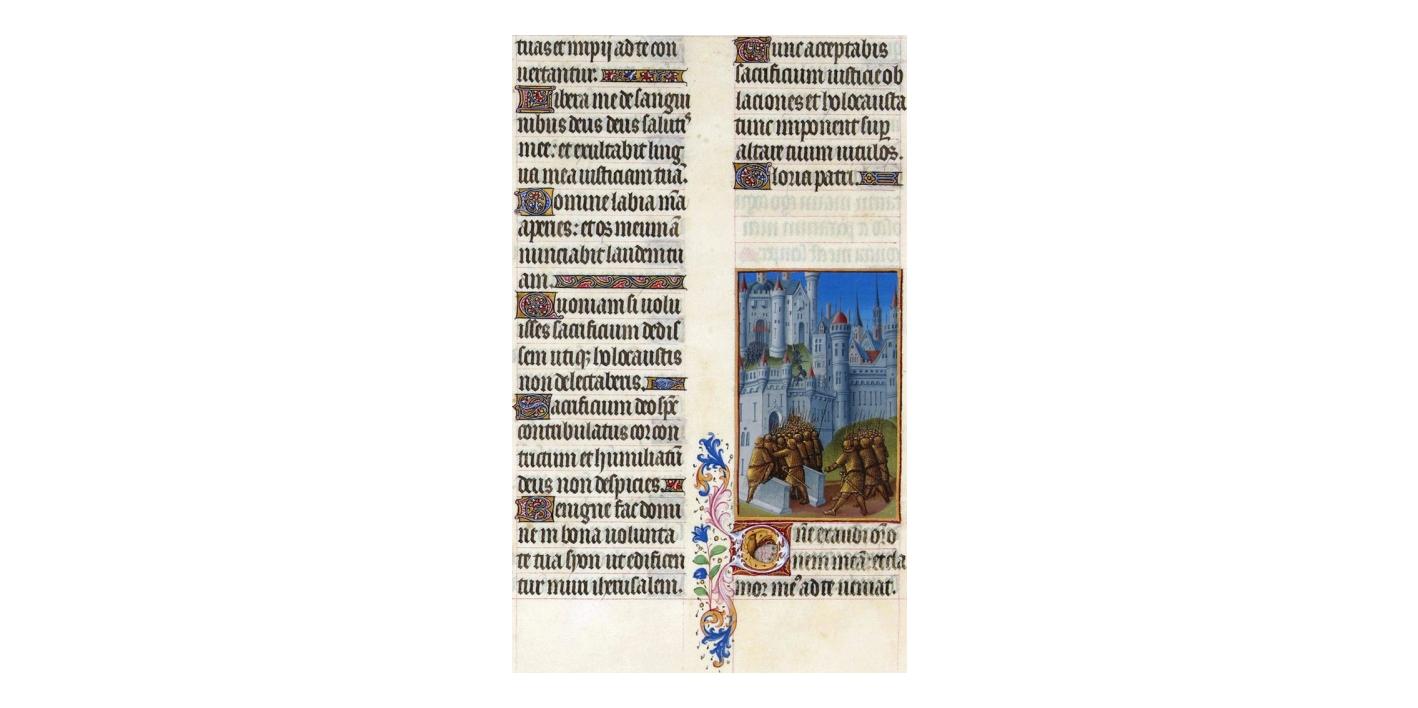 tuas et impij ad te con
uertantur.
Libera me de sangui
nibus deus deus salutis
mee: et exultabit ling
ua mea iusticiam tuā.
Domine labia mēa
aperies: et os meum ā
nunciabit laudem tu
am.
Quoniam si uolu
isses sacrificium dedis
sem utiqꝫ holocaustis
non delectaberis.
Sacrificium deo spc̄
contribulatus cor con
tritum et humiliatū
deus non despicies.
Benigne fac domi
ne in bona uolunta
te tua syon ut edificen
tur muri iherusalem.
Tunc acceptabis
sacrificium iusticie ob
laciones et holocausta
tunc imponent suꝑ
altare tuum uitulos.
Gloria patri.
Dn̄e exaudi or̄o
nem meā: et cla
mor meꝰ ad te ueniat.